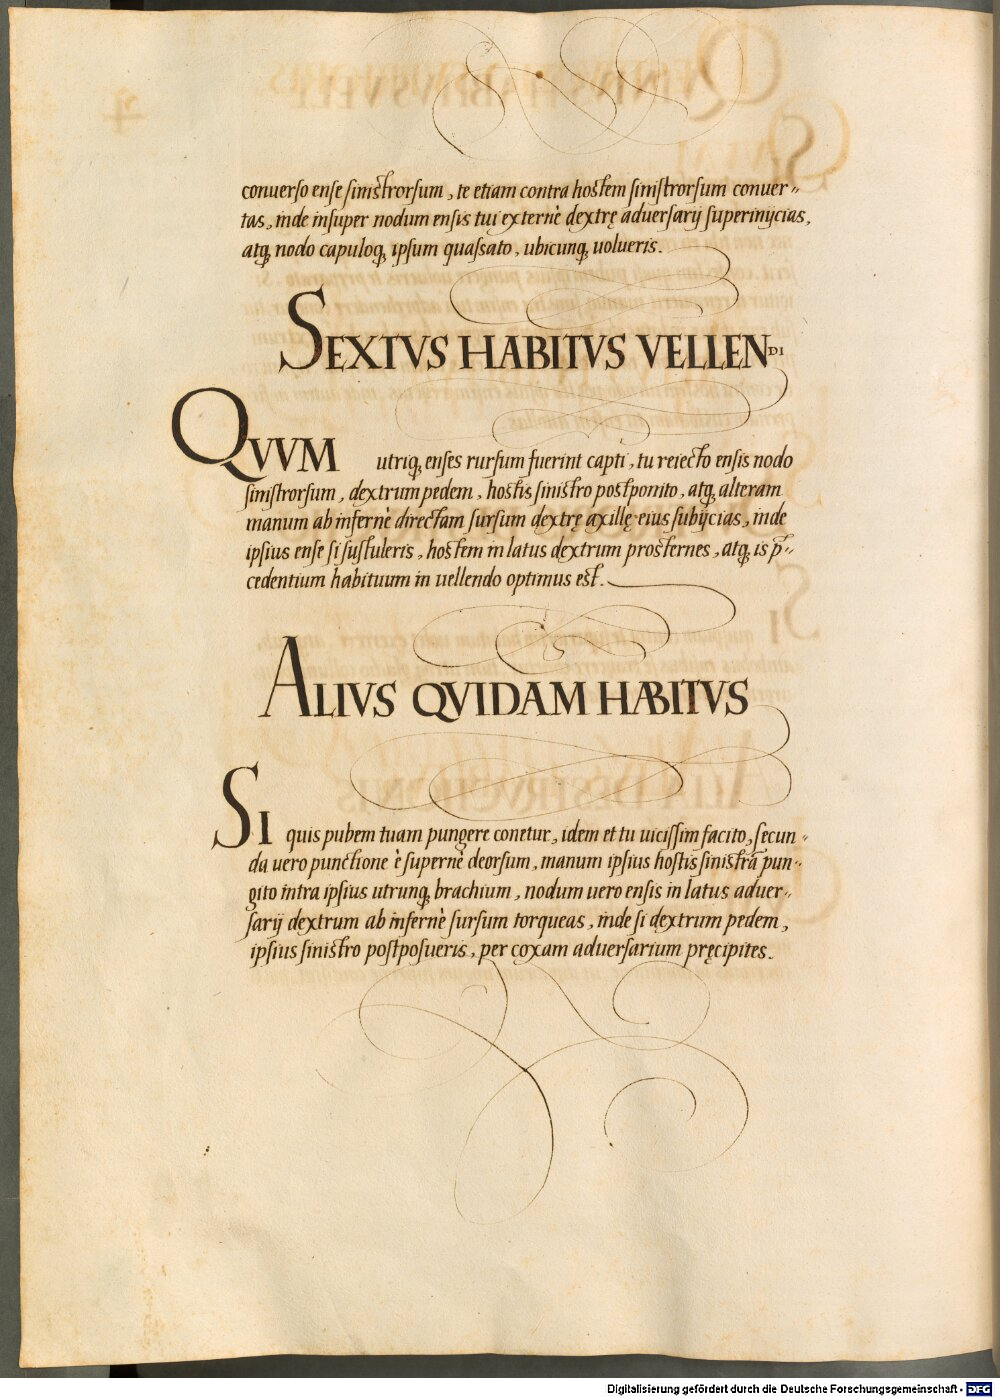 conuerso ense sinistrorsum, te etiam contra hostem sinistrorsum conuer-
tas, inde insuper nodum ensis tui externè dextrę aduersarij superinijcias,
atq; nodo capuloq; ipsum quassato, ubicunq; uolueris.
SEXTVS HABITVS VELLENDI
QVVM utriq; enses rursum fuerint capti, tu reiecto ensis nodo
sinistrorsum, dextrum pedem, hostis sinistro postponito, atq; alteram
manum ab infernè directam sursum dextrę axillę eius subijcias, inde
ipsius ense si sustuleris, hostem in latus dextrum prosternes, atq; is p̄-
cedentium habituum in uellendo optimus est.
ALIVS QVIDAM HABITVS
SI quis pubem tuam pungere conetur, idem et tu uicissim facito, secun-
da uero punctione è supernè deorsum, manum ipsius hostis sinistrā pun-
gito intra ipsius utrunq; brachium, nodum uero ensis in latus aduer-
sarij dextrum ab infernè sursum torqueas, inde si dextrum pedem,
ipsius sinistro postposueris, per coxam aduersarium pręcipites.
Digitalisierung gefördert durch die Deutsche Forschungsgemeinschaft - DFG